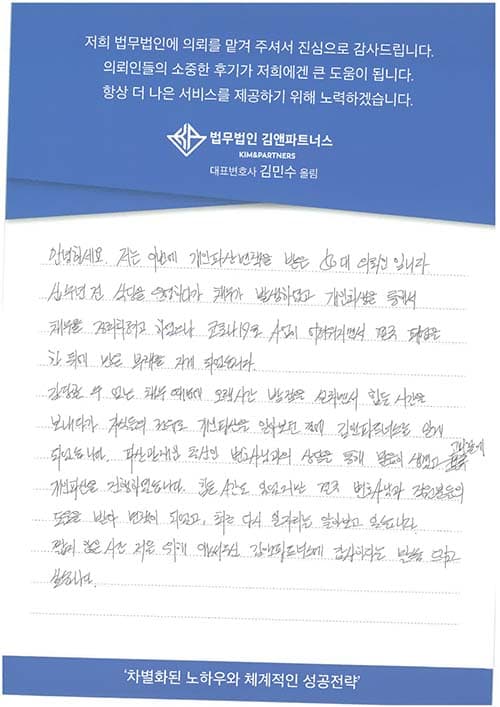 저희 법무법인에 의뢰를 맡겨 주셔서 진심으로 감사드립니다.
의뢰인들의 소중한 후기가 저희에겐 큰 도움이 됩니다.
항상 더 나은 서비스를 제공하기 위해 노력하겠습니다.
법무법인 김앤파트너스
KIM&PARTNERS
대표변호사 김민수 올림
안녕하세요. 저는 이번에 개인파산면책을 받은 50대 의뢰인입니다
십수년 전 식당을 운영하다가 채무가 발생하였고 개인회생을 통해서
채무를 정리하려고 하였으나 코로나19로 사업이 어려워지면서 전혀
한 뒤에 많은 부채를 지게 되었습니다.
감당할 수 없는 채무 때문에 오랜시간 밤잠을 설치면서 힘든 시간을
보내다가 지인들의 개인파산을 알아보던 중에 김앤파트너스를 알게
되었습니다. 파산관재인 출신인 변호사님과의 상담을 통해 믿음이 생겼고
개인파산을 진행하였습니다. 힘든 시간도 있었지만 변호사님과 직원분들의
도움을 받아 면책이 되었고, 최근 다시 일자리를 알아보고 있습니다.
짧지 않은 시간 저를 위해 애써주신 김앤파트너스에 감사하다는 말씀 드리고
싶습니다.
'차별화된 노하우와 체계적인 성공전략'